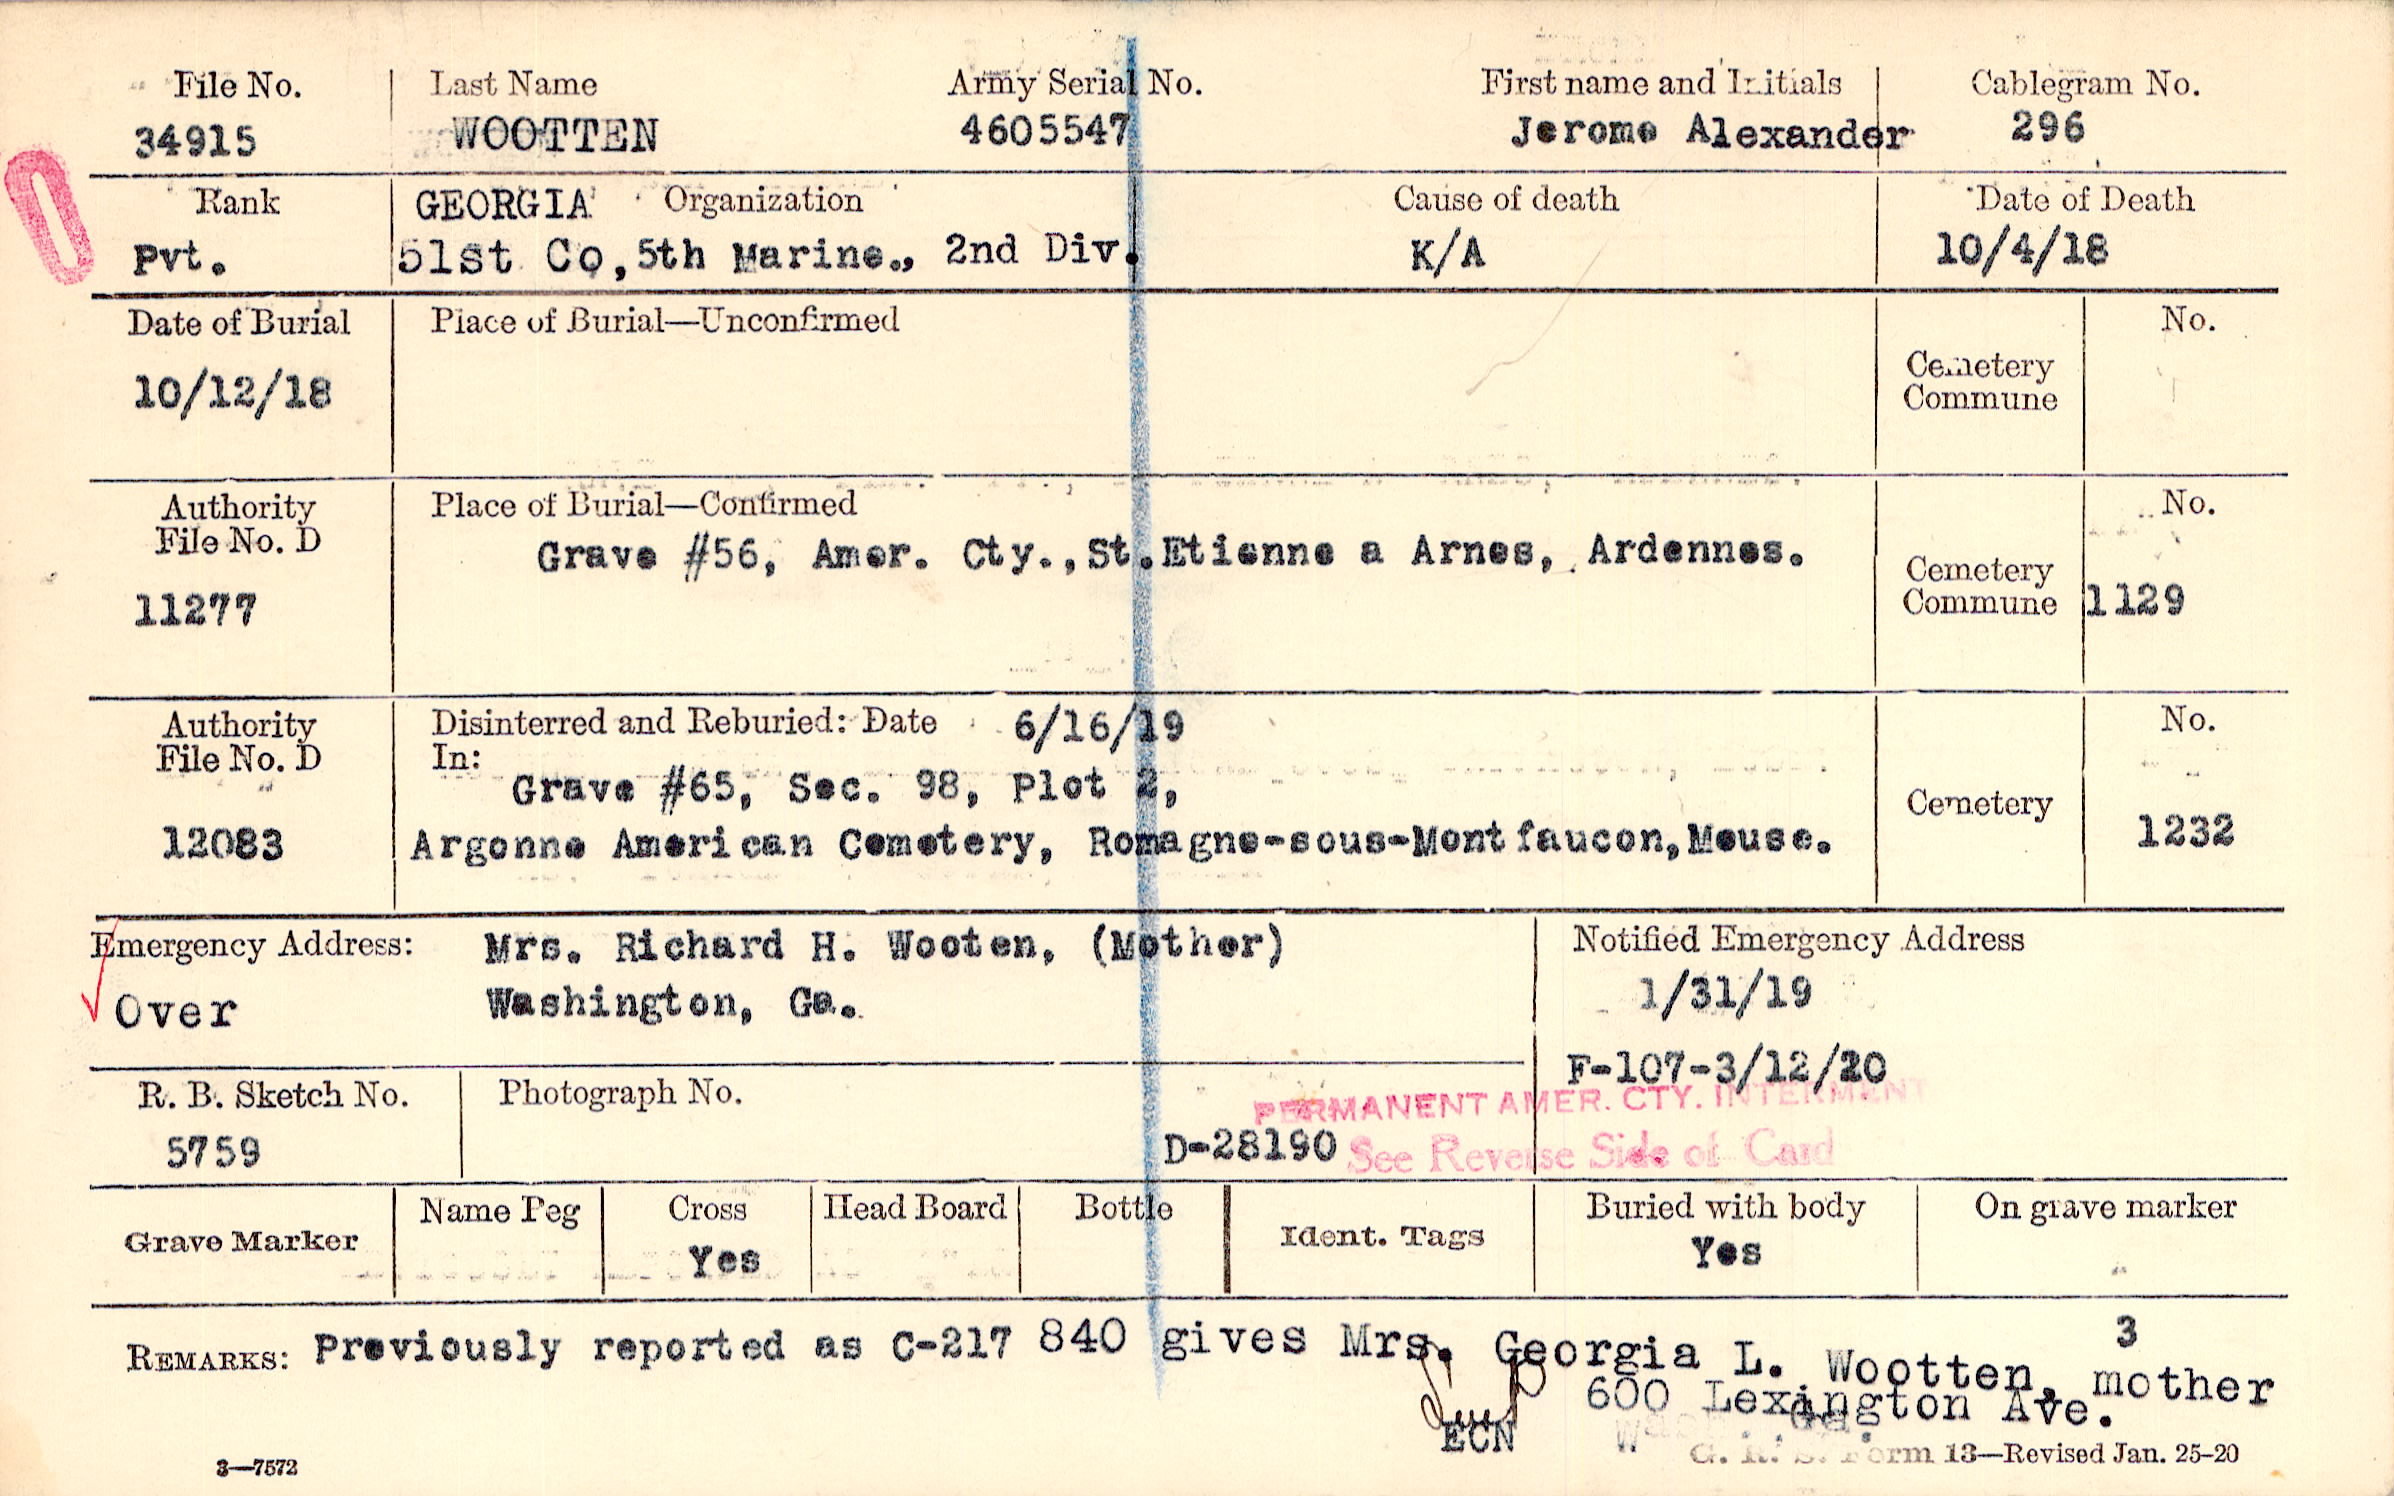 File No. Last Name Army Serial No. First name and Initials Cablegram No.
34915 WOOTTEN 4605547 Jerome Alexander 296
Rank GEORGIA Organization Cause of death Date of Death
Pvt. 51st Co, 5th Marine., 2nd Div. K/A 10/4/18
Date of Burial Place of Burial—Unconfirmed No.
10/12/18 Cemetery
Commune
Authority Place of Burial—Confirmed No.
File No. D
Grave #56, Amer. Cty., St. Etienne a Arnes, Ardennes.
11277 Cemetery
Commune 1129
Authority Disinterred and Reburied: Date 6/16/19 No.
File No. D In:
Grave #65, Sec. 98, Plot 2, Cemetery
12083 Argonne American Cemetery, Romagne-sous-Montfaucon, Meuse. 1232
Emergency Address: Mrs. Richard H. Wooten, (Mother) Notified Emergency Address
Over Washington, Ga. 1/31/19
F-107-3/12/20
R. B. Sketch No. Photograph No. PERMANENT AMER. CTY. INTERMENT
5759 D-28190 See Reverse Side of Card
Grave Marker Name Peg Cross Head Board Bottle Ident. Tags Buried with body On grave marker
Yes Yes
3
REMARKS: Previously reported as C-217 840 gives Mrs. Georgia L. Wootten, mother
600 Lexington Ave.
ECN
3—7572 G. R. S. Form 13—Revised Jan. 25-20